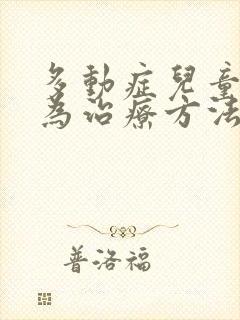 多動症兒童
為治療方法
普洛福